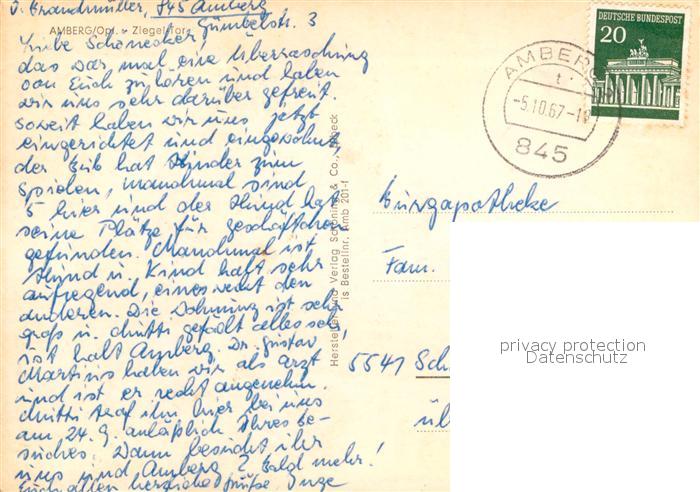 J. Brandmüller, 845 Amberg
Gümbelstr. 3
AMBERG/Opf. - Ziegeltor
Liebe Schönecker
das war mal eine Überraschung
von Euch zu hören und haben
wir uns sehr darüber gefreut.
Soweit haben wir uns jetzt
eingerichtet und eingewöhnt,
der Bub hat Kinder zum
Spielen, manchmal sind
5 hier und der Hund hat
seine Plätze für Geschäftchen
gefunden. Manchmal ist
Hund u. Kind halt sehr
aufregend, eines weckt den
anderen. Die Wohnung ist sehr
groß u. Mutti gefällt alles sehr,
ist halt Amberg. Dr. Gustav
Martius haben wir als Arzt
und ist er recht angenehm.
Mutti traf ihn hier bei uns
am 24.9. anläßlich Ihres Be-
suches. Wann besucht ihr
uns und Amberg? Bald mehr!
Euch allen herzliche Grüße Inge
Herstellung und Verlag Schöning & Co., Lübeck
is Bestellnr. Amb 201-f
AMBERG
t
-5.10.67-1
845
DEUTSCHE BUNDESPOST
20
Burgapotheke
Fam.
5541 Sch
üb
privacy protection
Datenschutz